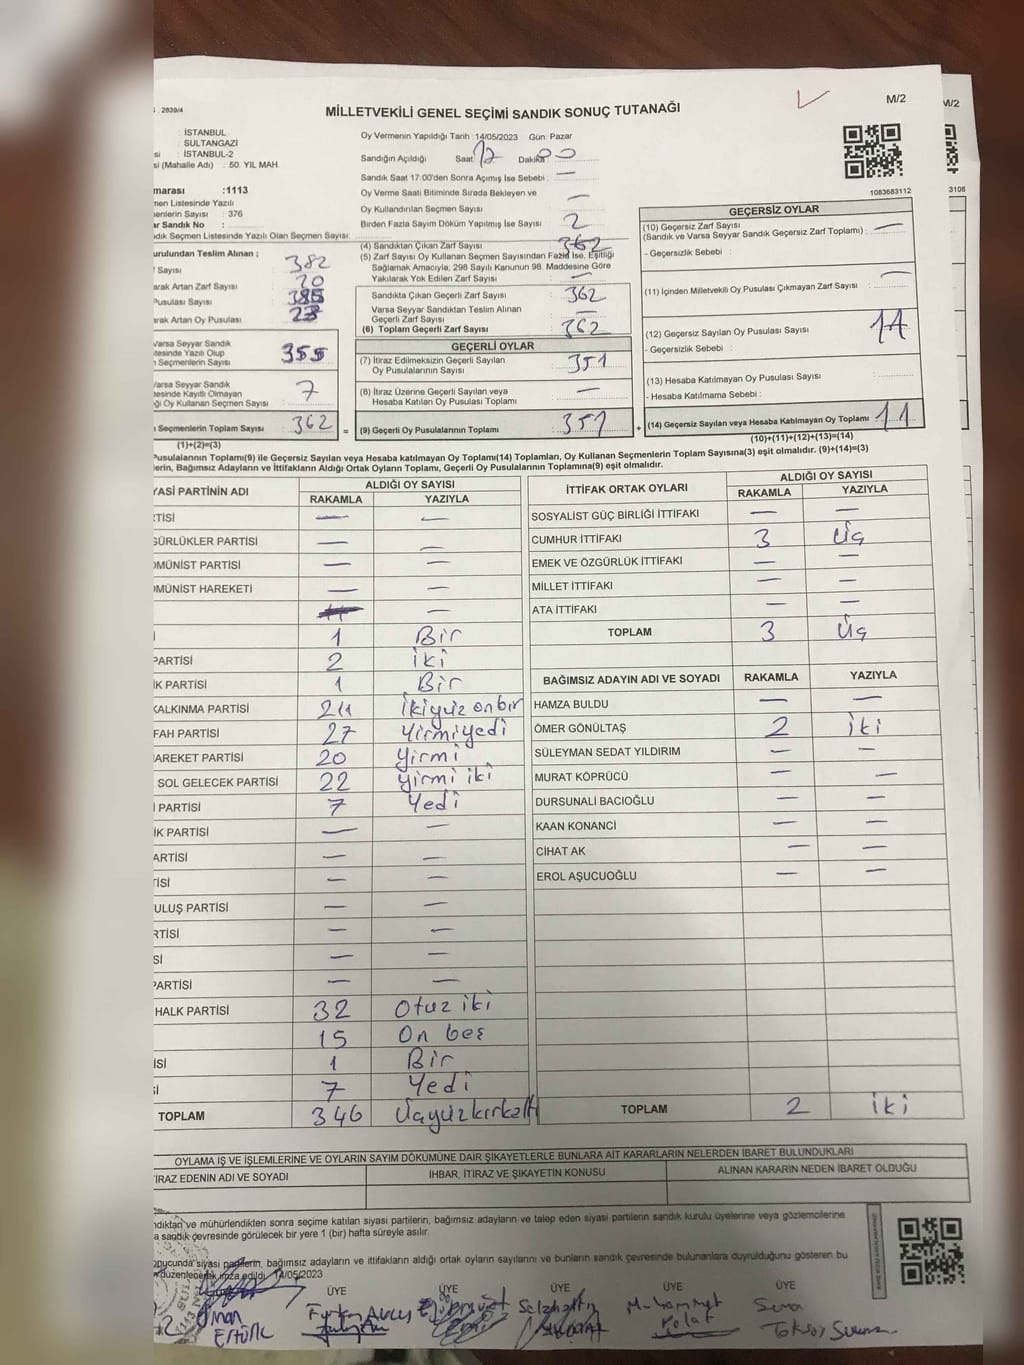 2839/4
MİLLETVEKİLİ GENEL SEÇİMİ SANDIK SONUÇ TUTANAĞI
M/2
M/2
: İSTANBUL
: SULTANGAZİ
: İSTANBUL-2
si (Mahalle Adı) : 50. YIL MAH.
marası :1113
men Listesinde Yazılı
menlerin Sayısı : 376
ar Sandık No :
ndık Seçmen Listesinde Yazılı Olan Seçmen Sayısı.
urulundan Teslim Alınan ;
Sayısı : 382
arak Artan Zarf Sayısı : 20
Pusulası Sayısı : 385
arak Artan Oy Pusulası : 23
Varsa Seyyar Sandık
tesinde Yazılı Olup
Seçmenlerin Sayısı : 355
Varsa Seyyar Sandık
tesinde Kayıtlı Olmayan
ği Oy Kullanan Seçmen Sayısı : 7
Seçmenlerin Toplam Sayısı : 362 =
(1)+(2)=(3)
Oy Vermenin Yapıldığı Tarih :14/05/2023 Gün: Pazar
Sandığın Açıldığı Saat 17 Dakika 00
Sandık Saat 17:00'den Sonra Açımış İse Sebebi : —
Oy Verme Saati Bitiminde Sırada Bekleyen ve
Oy Kullandırılan Seçmen Sayısı —
Birden Fazla Sayım Döküm Yapılmış İse Sayısı 2
(4) Sandıktan Çıkan Zarf Sayısı 362
(5) Zarf Sayısı Oy Kullanan Seçmen Sayısından Fazla İse, Eşitliği
Sağlamak Amacıyla; 298 Sayılı Kanunun 98. Maddesine Göre
Yakılarak Yok Edilen Zarf Sayısı —
Sandıkta Çıkan Geçerli Zarf Sayısı 362
Varsa Seyyar Sandıktan Teslim Alınan
Geçerli Zarf Sayısı —
(6) Toplam Geçerli Zarf Sayısı 362
GEÇERLİ OYLAR
(7) İtiraz Edilmeksizin Geçerli Sayılan
Oy Pusulalarının Sayısı : 351
(8) İtiraz Üzerine Geçerli Sayılan veya
Hesaba Katılan Oy Pusulası Toplamı : —
(9) Geçerli Oy Pusulalarının Toplamı : 351 +
1083683112
3108
GEÇERSİZ OYLAR
(10) Geçersiz Zarf Sayısı : —
(Sandık ve Varsa Seyyar Sandık Geçersiz Zarf Toplamı)
- Geçersizlik Sebebi :
(11) İçinden Milletvekili Oy Pusulası Çıkmayan Zarf Sayısı : —
(12) Geçersiz Sayılan Oy Pusulası Sayısı : 11
- Geçersizlik Sebebi :
(13) Hesaba Katılmayan Oy Pusulası Sayısı :
- Hesaba Katılmama Sebebi :
(14) Geçersiz Sayılan veya Hesaba Katılmayan Oy Toplamı : 11
(10)+(11)+(12)+(13)=(14)
Pusulalarının Toplamı(9) ile Geçersiz Sayılan veya Hesaba katılmayan Oy Toplamı(14) Toplamları, Oy Kullanan Seçmenlerin Toplam Sayısına(3) eşit olmalıdır. (9)+(14)=(3)
lerin, Bağımsız Adayların ve İttifakların Aldığı Ortak Oyların Toplamı, Geçerli Oy Pusulalarının Toplamına(9) eşit olmalıdır.
YASİ PARTİNİN ADI ALDIĞI OY SAYISI
RAKAMLA YAZIYLA
RTİSİ — —
GÜRLÜKLER PARTİSİ — —
OMÜNİST PARTİSİ — —
OMÜNİST HAREKETİ — —
—
1 Bir
PARTİSİ 2 iki
İK PARTİSİ 1 Bir
KALKINMA PARTİSİ 211 ikiyüz onbir
FAH PARTİSİ 27 Yirmiyedi
AREKET PARTİSİ 20 Yirmi
SOL GELECEK PARTİSİ 22 yirmi iki
İ PARTİSİ 7 Yedi
İK PARTİSİ — —
ARTİSİ — —
TİSİ — —
ULUŞ PARTİSİ — —
RTİSİ — —
Sİ — —
PARTİSİ — —
HALK PARTİSİ 32 Otuz iki
15 On beş
İSİ 1 Bir
İ 7 Yedi
TOPLAM 346 Üçyüzkırkaltı
İTTİFAK ORTAK OYLARI ALDIĞI OY SAYISI
RAKAMLA YAZIYLA
SOSYALİST GÜÇ BİRLİĞİ İTTİFAKI — —
CUMHUR İTTİFAKI 3 Üç
EMEK VE ÖZGÜRLÜK İTTİFAKI — —
MİLLET İTTİFAKI — —
ATA İTTİFAKI — —
TOPLAM 3 Üç
BAĞIMSIZ ADAYIN ADI VE SOYADI RAKAMLA YAZIYLA
HAMZA BULDU — —
ÖMER GÖNÜLTAŞ 2 iki
SÜLEYMAN SEDAT YILDIRIM — —
MURAT KÖPRÜCÜ — —
DURSUNALİ BACIOĞLU — —
KAAN KONANCİ — —
CİHAT AK — —
EROL AŞUCUOĞLU — —
TOPLAM 2 iki
OYLAMA İŞ VE İŞLEMLERİNE VE OYLARIN SAYIM DÖKÜMÜNE DAİR ŞİKAYETLERLE BUNLARA AİT KARARLARIN NELERDEN İBARET BULUNDUKLARI
TİRAZ EDENİN ADI VE SOYADI İHBAR, İTİRAZ VE ŞİKAYETİN KONUSU ALINAN KARARIN NEDEN İBARET OLDUĞU
ndıktan ve mühürlendikten sonra seçime katılan siyasi partilerin, bağımsız adayların ve talep eden siyasi partilerin sandık kurulu üyelerine veya gözlemcilerine
a sandık çevresinde görülecek bir yere 1 (bir) hafta süreyle asılır.
onucunda siyasi partilerin, bağımsız adayların ve ittifakların aldığı ortak oyların sayılarını ve bunların sandık çevresinde bulunanlara duyrulduğunu gösteren bu
düzenlenerek imza edildi. 14/05/2023
ÜYE ÜYE ÜYE ÜYE ÜYE
Selahattin Muhammet Sema
ERTÜRK Polat Toksoy